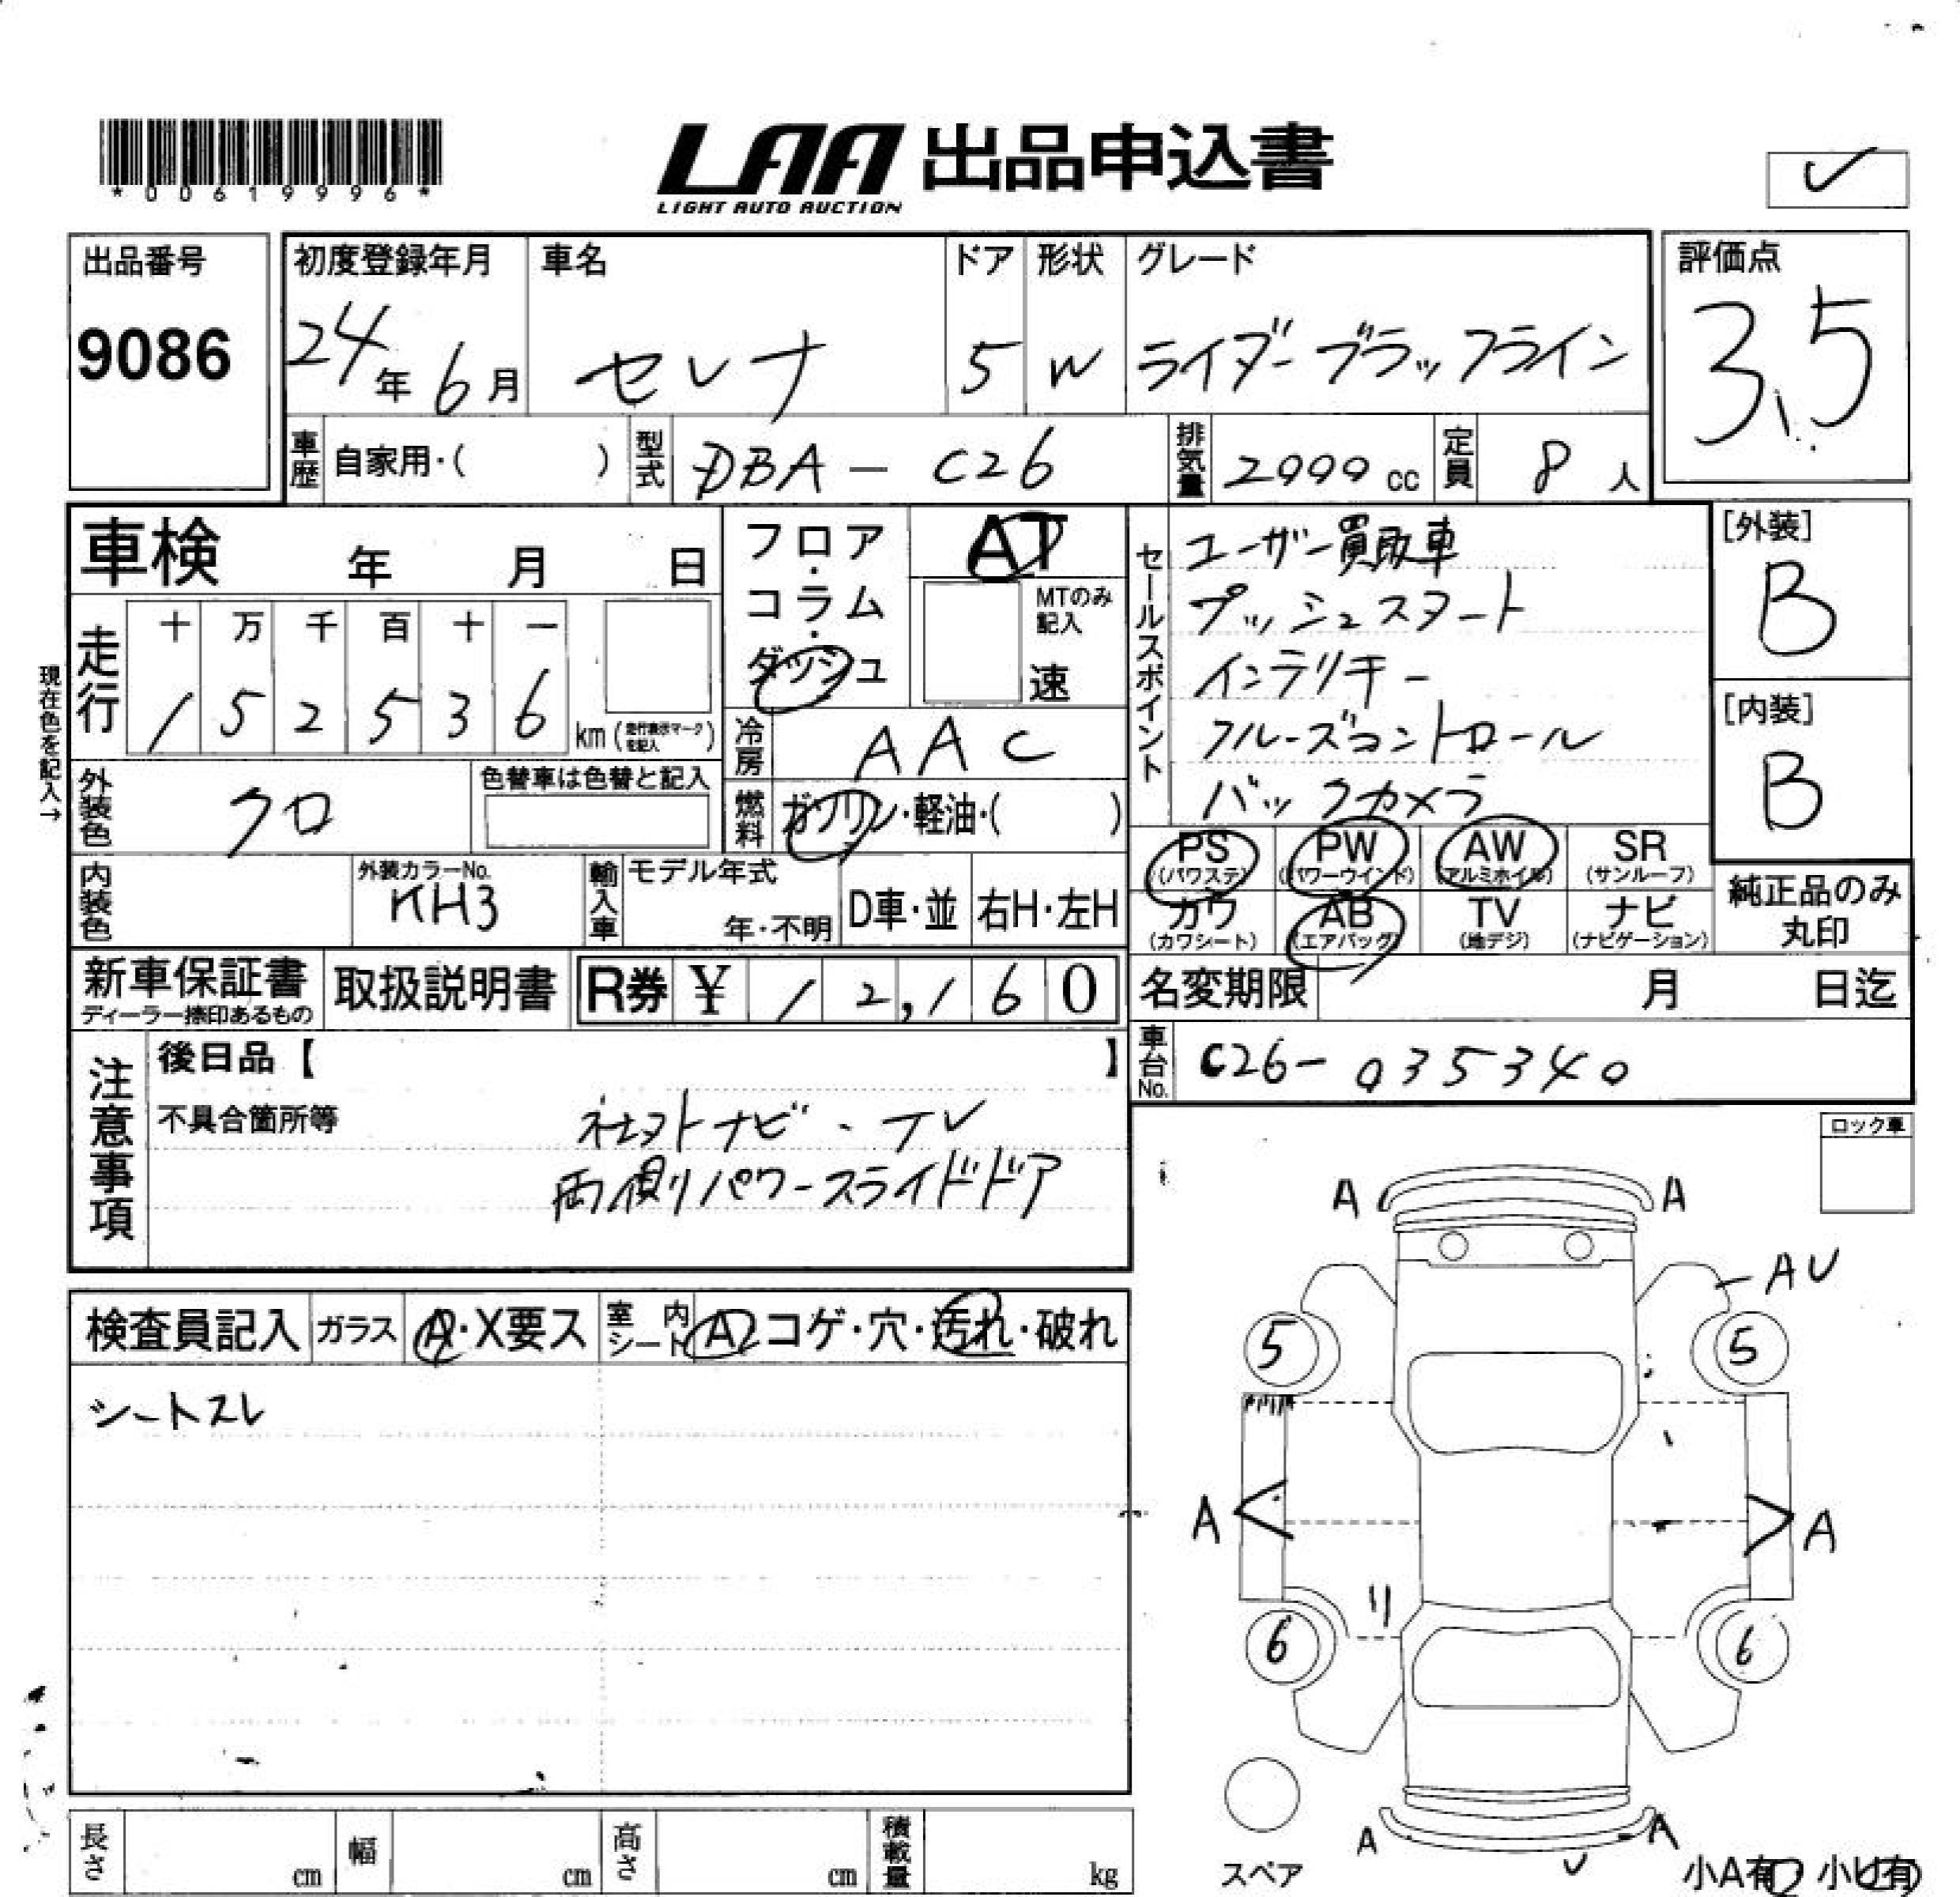 *00619996*
LAA 出品申込書
LIGHT AUTO AUCTION
出品番号
9086
初度登録年月
24年 6月
車名
セレナ
ドア
5
形状
W
グレード
ライダーブラックライン
評価点
3.5
車歴 自家用・( )
型式 DBA－C26
排気量 2000 cc
定員 8 人
車検 年 月 日
フロア・コラム・ダッシュ
AT
MTのみ記入
速
セールスポイント
ユーザー買取車
プッシュスタート
インテリキー
クルーズコントロール
バックカメラ
[外装]
B
[内装]
B
現在色を記入→
走行
十 万 千 百 十 一
1 5 2 5 3 6
km (走行表示マークを記入)
冷房 AAC
外装色 クロ
色替車は色替と記入
燃料 ガソリン・軽油・( )
PS (パワステ)
PW (パワーウインド)
AW (アルミホイル)
SR (サンルーフ)
内装色
外装カラーNo.
KH3
輸入車
モデル年式
年・不明
D車・並
右H・左H
カワ (カワシート)
AB (エアバッグ)
TV (地デジ)
ナビ (ナビゲーション)
純正品のみ丸印
新車保証書
ディーラー捺印あるもの
取扱説明書
R券 ¥ 12,160
名変期限 月 日迄
車台No. C26-035340
注意事項
後日品【 】
不具合箇所等
社外ナビ・TV
両側パワースライドドア
ロック車
検査員記入
ガラス A・X要ス
室内シート A コゲ・穴・汚れ・破れ
シートスレ
A A
AU
5 5
A A
6 6
A A
U
スペア
小A有 小U有
長さ cm
幅 cm
高さ cm
積載量 kg